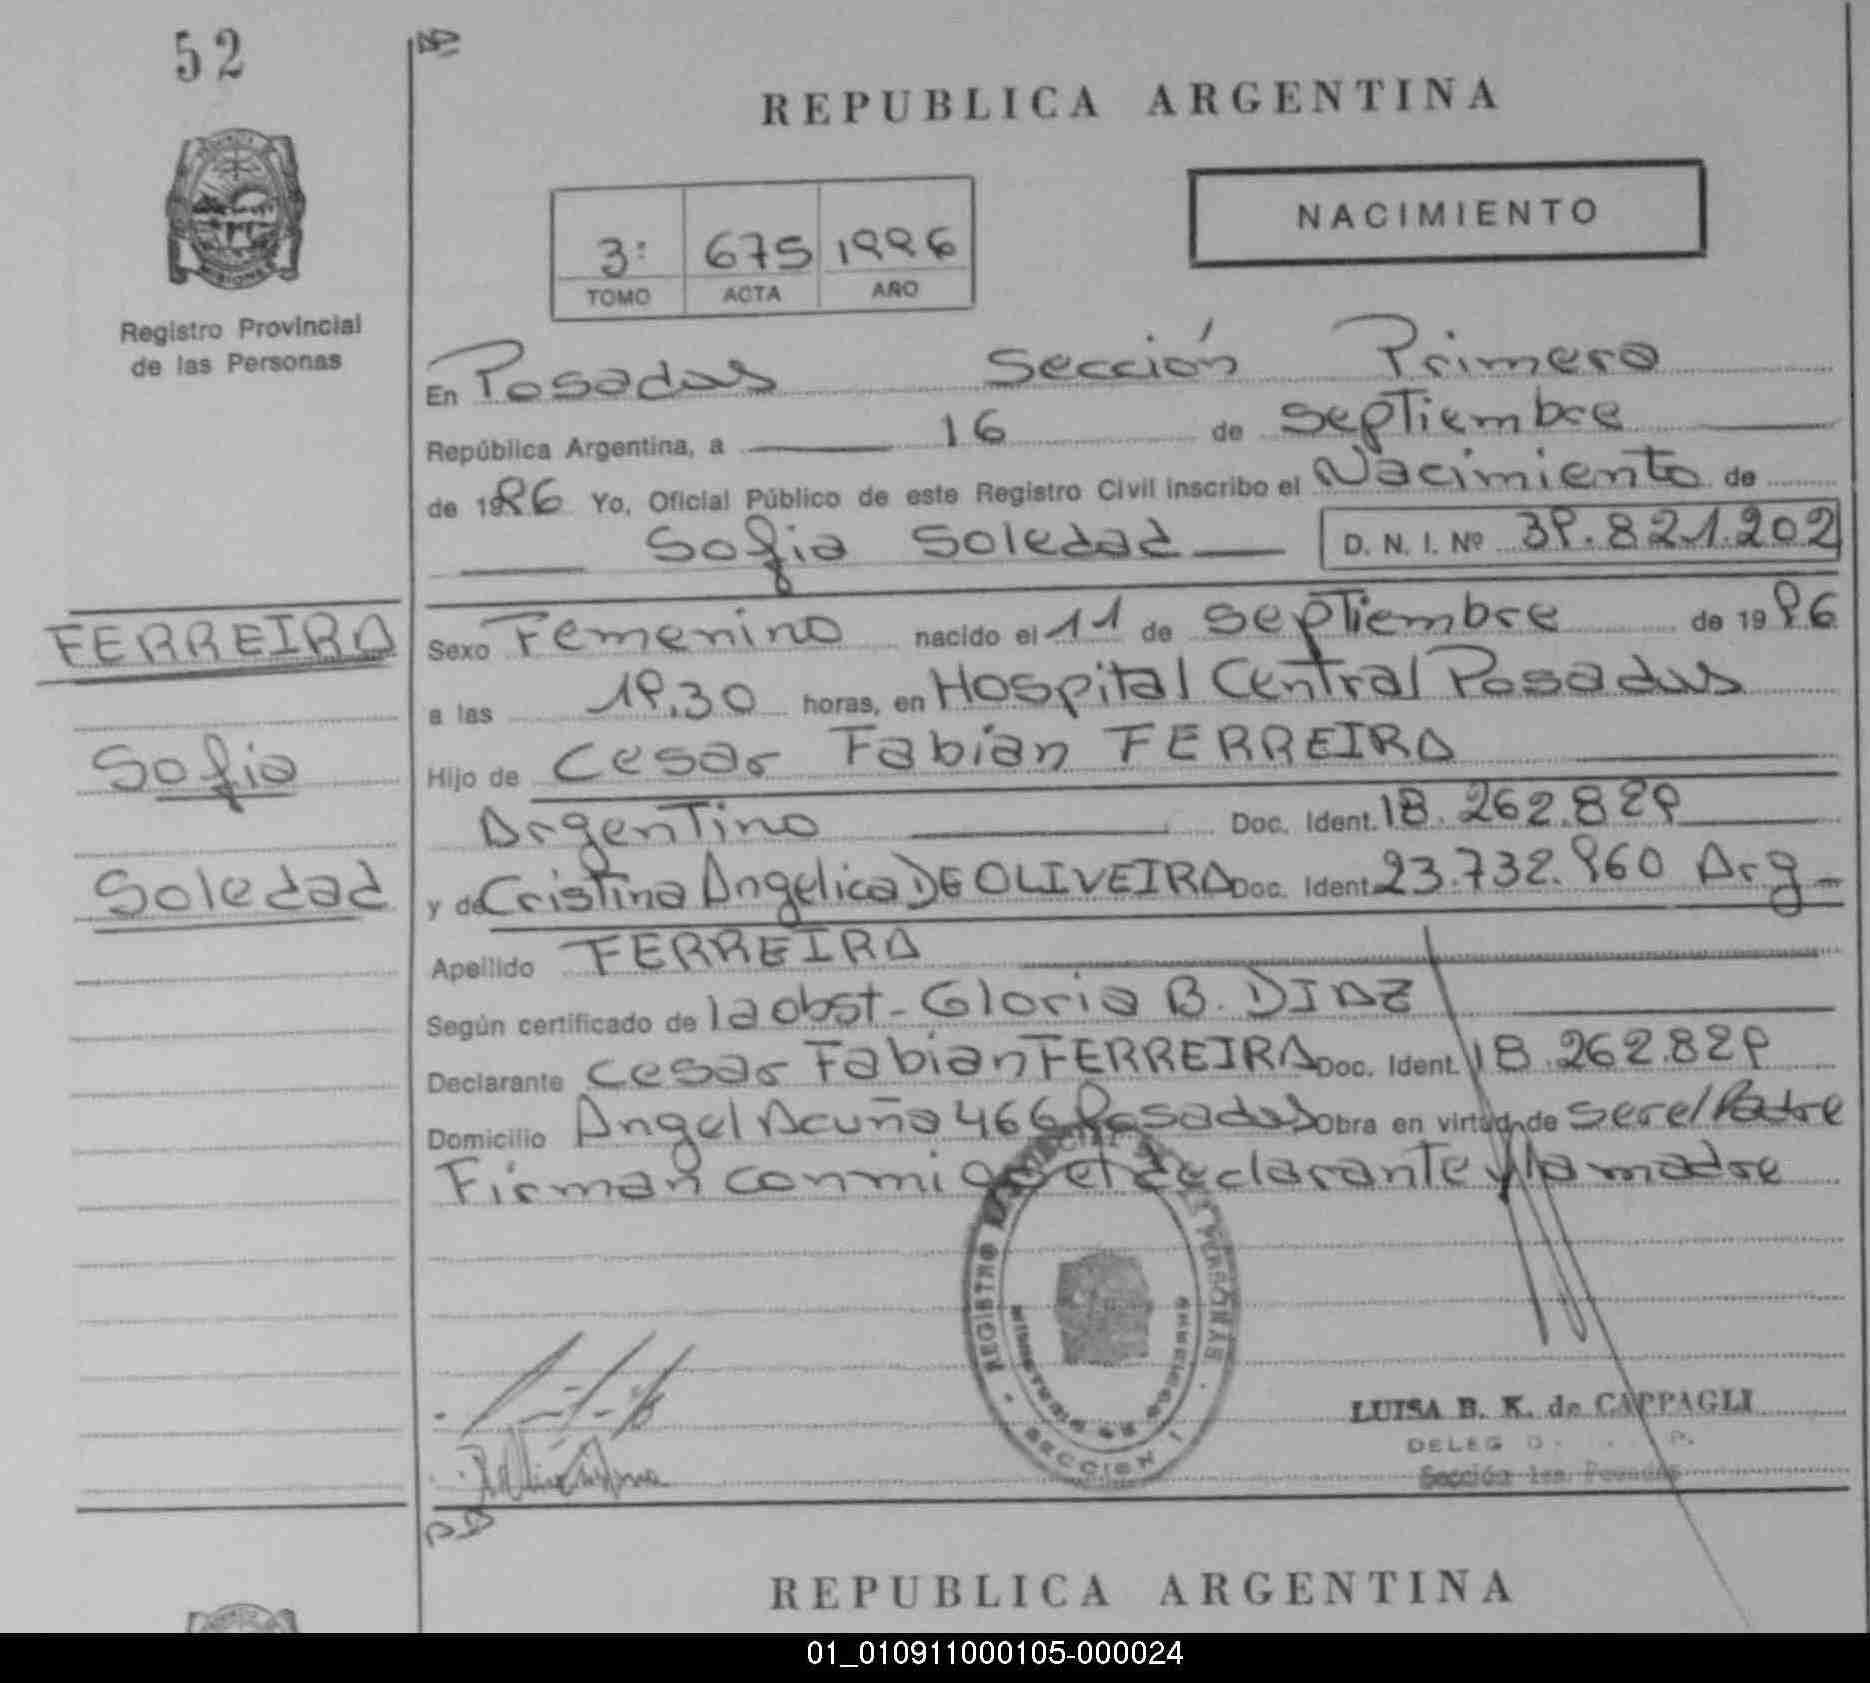 52
REPUBLICA ARGENTINA
NACIMIENTO
3: 675 1996
TOMO ACTA AÑO
Registro Provincial
de las Personas
En Posadas Sección Primera
República Argentina, a 16 de Septiembre
de 1996 Yo, Oficial Público de este Registro Civil inscribo el Nacimiento de
Sofia Soledad D. N. I. Nº 39.821.202
FERREIRA
Sofia
Soledad
Sexo Femenino nacido el 11 de Septiembre de 1996
a las 19.30 horas, en Hospital Central Posadas
Hijo de Cesar Fabián FERREIRA
Argentino Doc. Ident. 18.262.829
y de Cristina Angelica DE OLIVEIRA Doc. Ident. 23.732.960 Arg-
Apellido FERREIRA
Según certificado de la obst- Gloria B. DIAZ
Declarante Cesar Fabian FERREIRA Doc. Ident. 18.262.829
Domicilio Angel Acuña 466 Posadas Obra en virtud de ser el Padre
Firman conmigo el declarante y la madre
REGISTRO PERSONAS
MINISTERIO DE GOBIERNO
SECCION 1
LUISA B. K. de CAPPAGLI
Sección 1ra. Posadas
REPUBLICA ARGENTINA
01_010911000105-000024